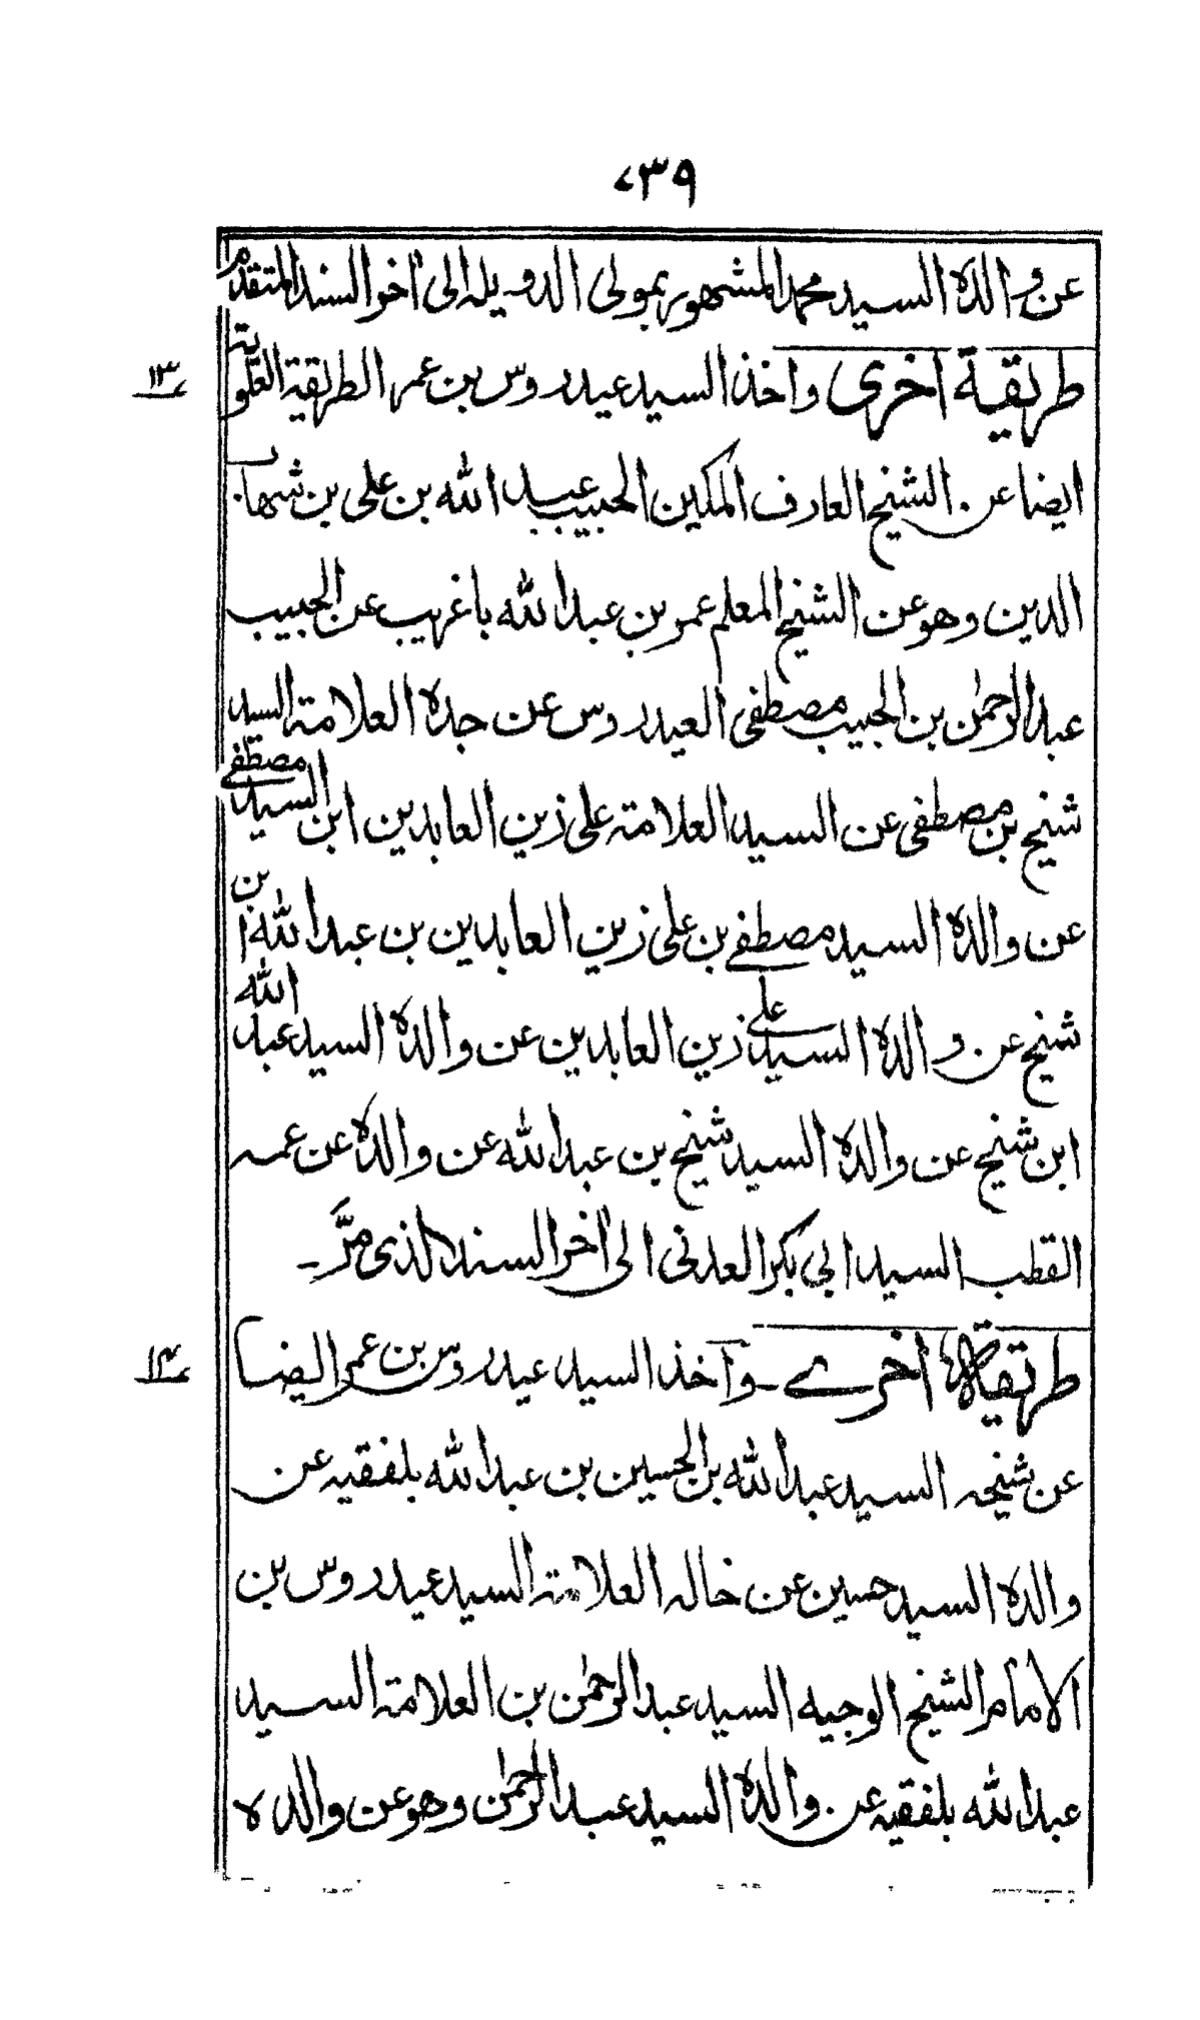 ٧٣٩
عن والده السيد محمد المشهور بمولى الدويله الى اخر السند المتقدم
طريقة اخرى واخذ السيد عيدروس بن عمر الطريقة العلوية
١٣
ايضا عن الشيخ العارف المكين الحبيب عبد الله بن على بن شهاب
الدين وهو عن الشيخ المعلم عمر بن عبد الله باغريب عن الحبيب
عبد الرحمٰن بن الحبيب مصطفى العيدروس عن جده العلامة السيد
شيخ بن مصطفى عن السيد العلامة على زين العابدين ابن السيد مصطفے
عن والده السيد مصطفے بن على زين العابدين بن عبد الله بن
شيخ عن والده السيد على زين العابدين عن والده السيد عبد الله
ابن شيخ عن والده السيد شيخ بن عبد الله عن والده عن عمه
القطب السيد ابي بكر العدنى الى اخر السند الذى مرَّ ـ
طريقة اخرے ـ واخذ السيد عيدروس بن عمر ايضا
١٤
عن شيخه السيد عبد الله بن الحسين بن عبد الله بلفقيه عن
والده السيد حسين عن خاله العلامة السيد عيدروس بن
الامام الشيخ الوجيه السيد عبد الرحمٰن بن العلامة السيد
عبد الله بلفقيه عن والده السيد عبد الرحمٰن وهو عن والده